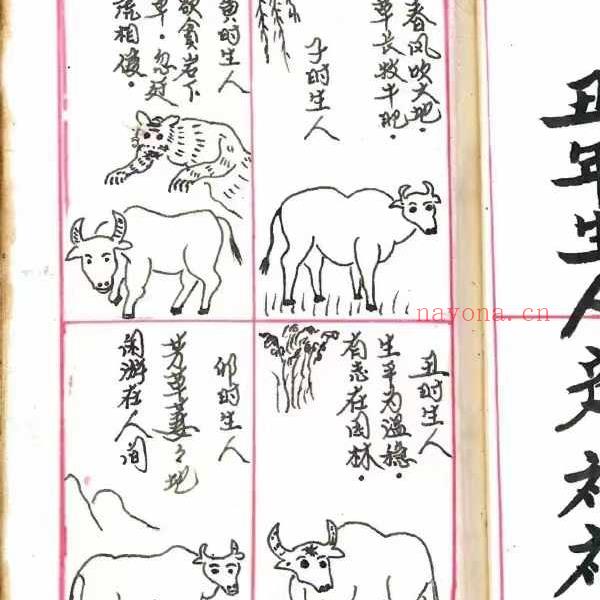 丑年生人
春风吹大地·
草长牧牛肥·
子时生人
寅时生人
欲贪岩下
草·忽
虎相侵·
丑时生人
生平为温稳·
有志在园林·
卯时生人
芳草萋々地
闲游在人间
nayona.cn